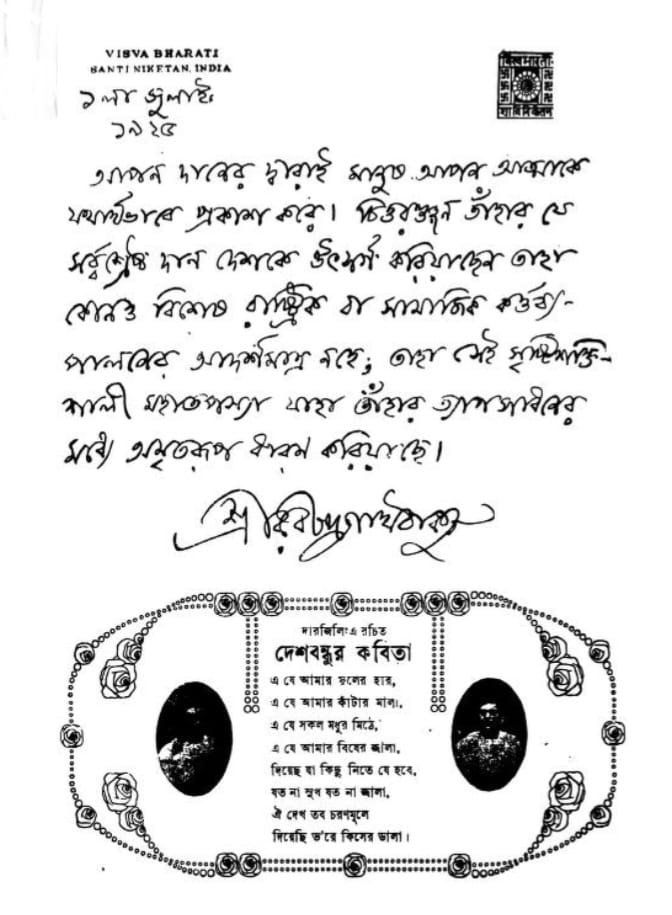 VISVA BHARATI
SANTI NIKETAN, INDIA
১লা জুলাই
১৯২৫
আপন দানের দ্বারাই মানুষ আপন আত্মাকে
যথার্থভাবে প্রকাশ করে। চিত্তরঞ্জন তাঁহার যে
সর্ব্বশ্রেষ্ঠ দান দেশকে উৎসর্গ করিয়াছেন তাহা
কোনও বিশেষ রাষ্ট্রিক বা সামাজিক কর্ত্তব্য-
পালনের আদর্শমাত্র নহে; তাহা সেই সৃষ্টিশক্তি-
শালী মহাতপস্যা যাহা তাঁহার ত্যাগসাধনের
মধ্যে অমৃতরূপ ধারণ করিয়াছে।
শ্রীরবীন্দ্রনাথ ঠাকুর
বিশ্বভারতী
শান্তিনিকেতন
দারজিলিংএ রচিত
দেশবন্ধুর কবিতা
এ যে আমার ফুলের হার,
এ যে আমার কাঁটার মালা,
এ যে সকল মধুর মিঠে,
এ যে আমার বিষের জ্বালা,
দিয়েছ যা কিছু নিতে যে হবে,
যত না সুখ যত না জ্বালা,
ঐ দেখ তব চরণমূলে
দিয়েছি ভ'রে কিসের ডালা।